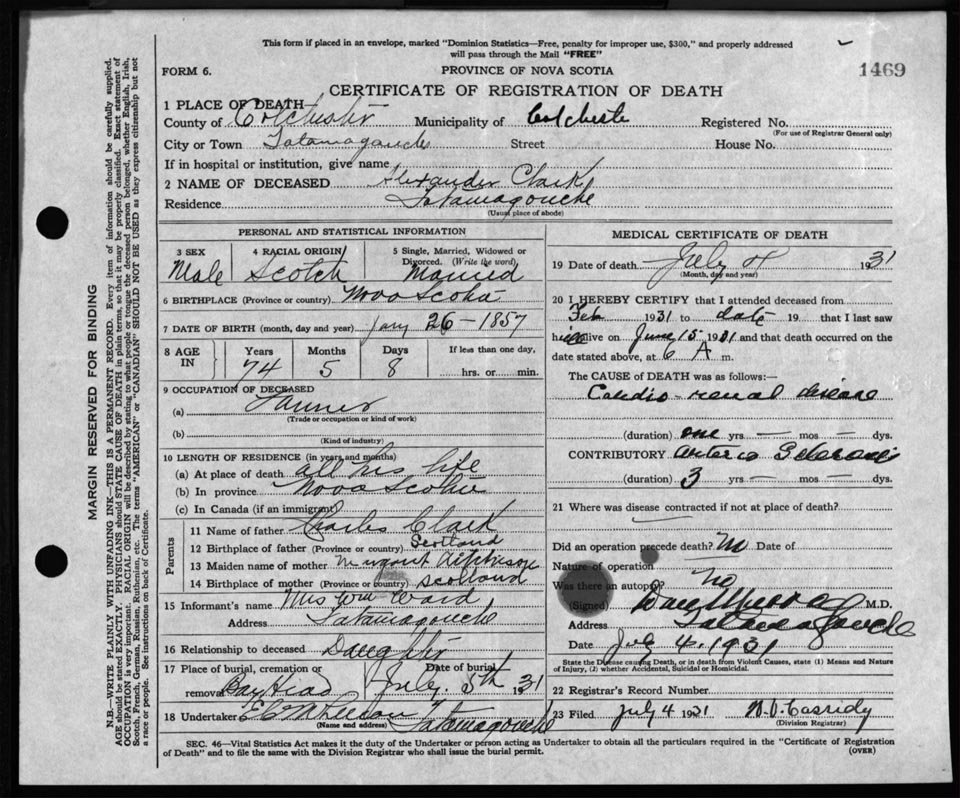 This form if placed in an envelope, marked "Dominion Statistics—Free, penalty for improper use, $300," and properly addressed
will pass through the Mail "FREE"
FORM 6.
PROVINCE OF NOVA SCOTIA
1469
CERTIFICATE OF REGISTRATION OF DEATH
1 PLACE OF DEATH
County of Colchester Municipality of Colchester Registered No.
(For use of Registrar General only)
City or Town Tatamagouche Street House No.
If in hospital or institution, give name
2 NAME OF DECEASED Alexander Clark
Residence Tatamagouche
(Usual place of abode)
PERSONAL AND STATISTICAL INFORMATION
3 SEX 4 RACIAL ORIGIN 5 Single, Married, Widowed or
Divorced. (Write the word)
Male Scotch Married
6 BIRTHPLACE (Province or country) Nova Scotia
7 DATE OF BIRTH (month, day and year) Jany 26-1857
8 AGE IN Years Months Days If less than one day,
74 5 8 hrs. or min.
9 OCCUPATION OF DECEASED
(a)
(Trade or occupation or kind of work)
(b)
(Kind of industry)
10 LENGTH OF RESIDENCE (in years and months)
(a) At place of death all his life
(b) In province Nova Scotia
(c) In Canada (if an immigrant)
Parents
11 Name of father Charles Clark
12 Birthplace of father (Province or country) Scotland
13 Maiden name of mother Margaret Aitchison
14 Birthplace of mother (Province or country) Scotland
15 Informant's name Mrs Wm Ward
Address Tatamagouche
16 Relationship to deceased Daughter
17 Place of burial, cremation or Date of burial
removal Bay Head July 5th 1931
18 Undertaker Tatamagouche
(Name and address)
MEDICAL CERTIFICATE OF DEATH
19 Date of death July 4 1931
(Month, day and year)
20 I HEREBY CERTIFY that I attended deceased from
Feb 1931 to date 19 that I last saw
him alive on June 15 1931 and that death occurred on the
date stated above, at 6 A m.
The CAUSE of DEATH was as follows:—
Cardio-renal disease
(duration) one yrs — mos — dys.
CONTRIBUTORY Arterio Sclerosis
(duration) 3 yrs — mos — dys.
21 Where was disease contracted if not at place of death?
Did an operation precede death? No Date of
Nature of operation
Was there an autopsy? No
(Signed) Dan Murray M.D.
Address Tatamagouche
Date July 4, 1931
State the Disease causing Death, or in death from Violent Causes, state (1) Means and Nature
of Injury, (2) whether Accidental, Suicidal or Homicidal.
22 Registrar's Record Number
23 Filed July 4 1931 Cassidy
(Division Registrar)
SEC. 46—Vital Statistics Act makes it the duty of the Undertaker or person acting as Undertaker to obtain all the particulars required in the "Certificate of Registration
of Death" and to file the same with the Division Registrar who shall issue the burial permit. (OVER)
MARGIN RESERVED FOR BINDING
N.B.—WRITE PLAINLY WITH UNFADING INK—THIS IS A PERMANENT RECORD. Every item of information should be carefully supplied.
AGE should be stated EXACTLY. PHYSICIANS should STATE CAUSE OF DEATH in plain terms, so that it may be properly classified. Exact statement of
OCCUPATION is very important. RACIAL ORIGIN will be described by stating to what people or tongue the deceased person belonged, whether English, Irish,
Scotch, French, German, Russian, Ruthenian, etc. The terms "AMERICAN" or "CANADIAN" SHOULD NOT BE USED as they express citizenship but not
a race or people. See instructions on back of Certificate.